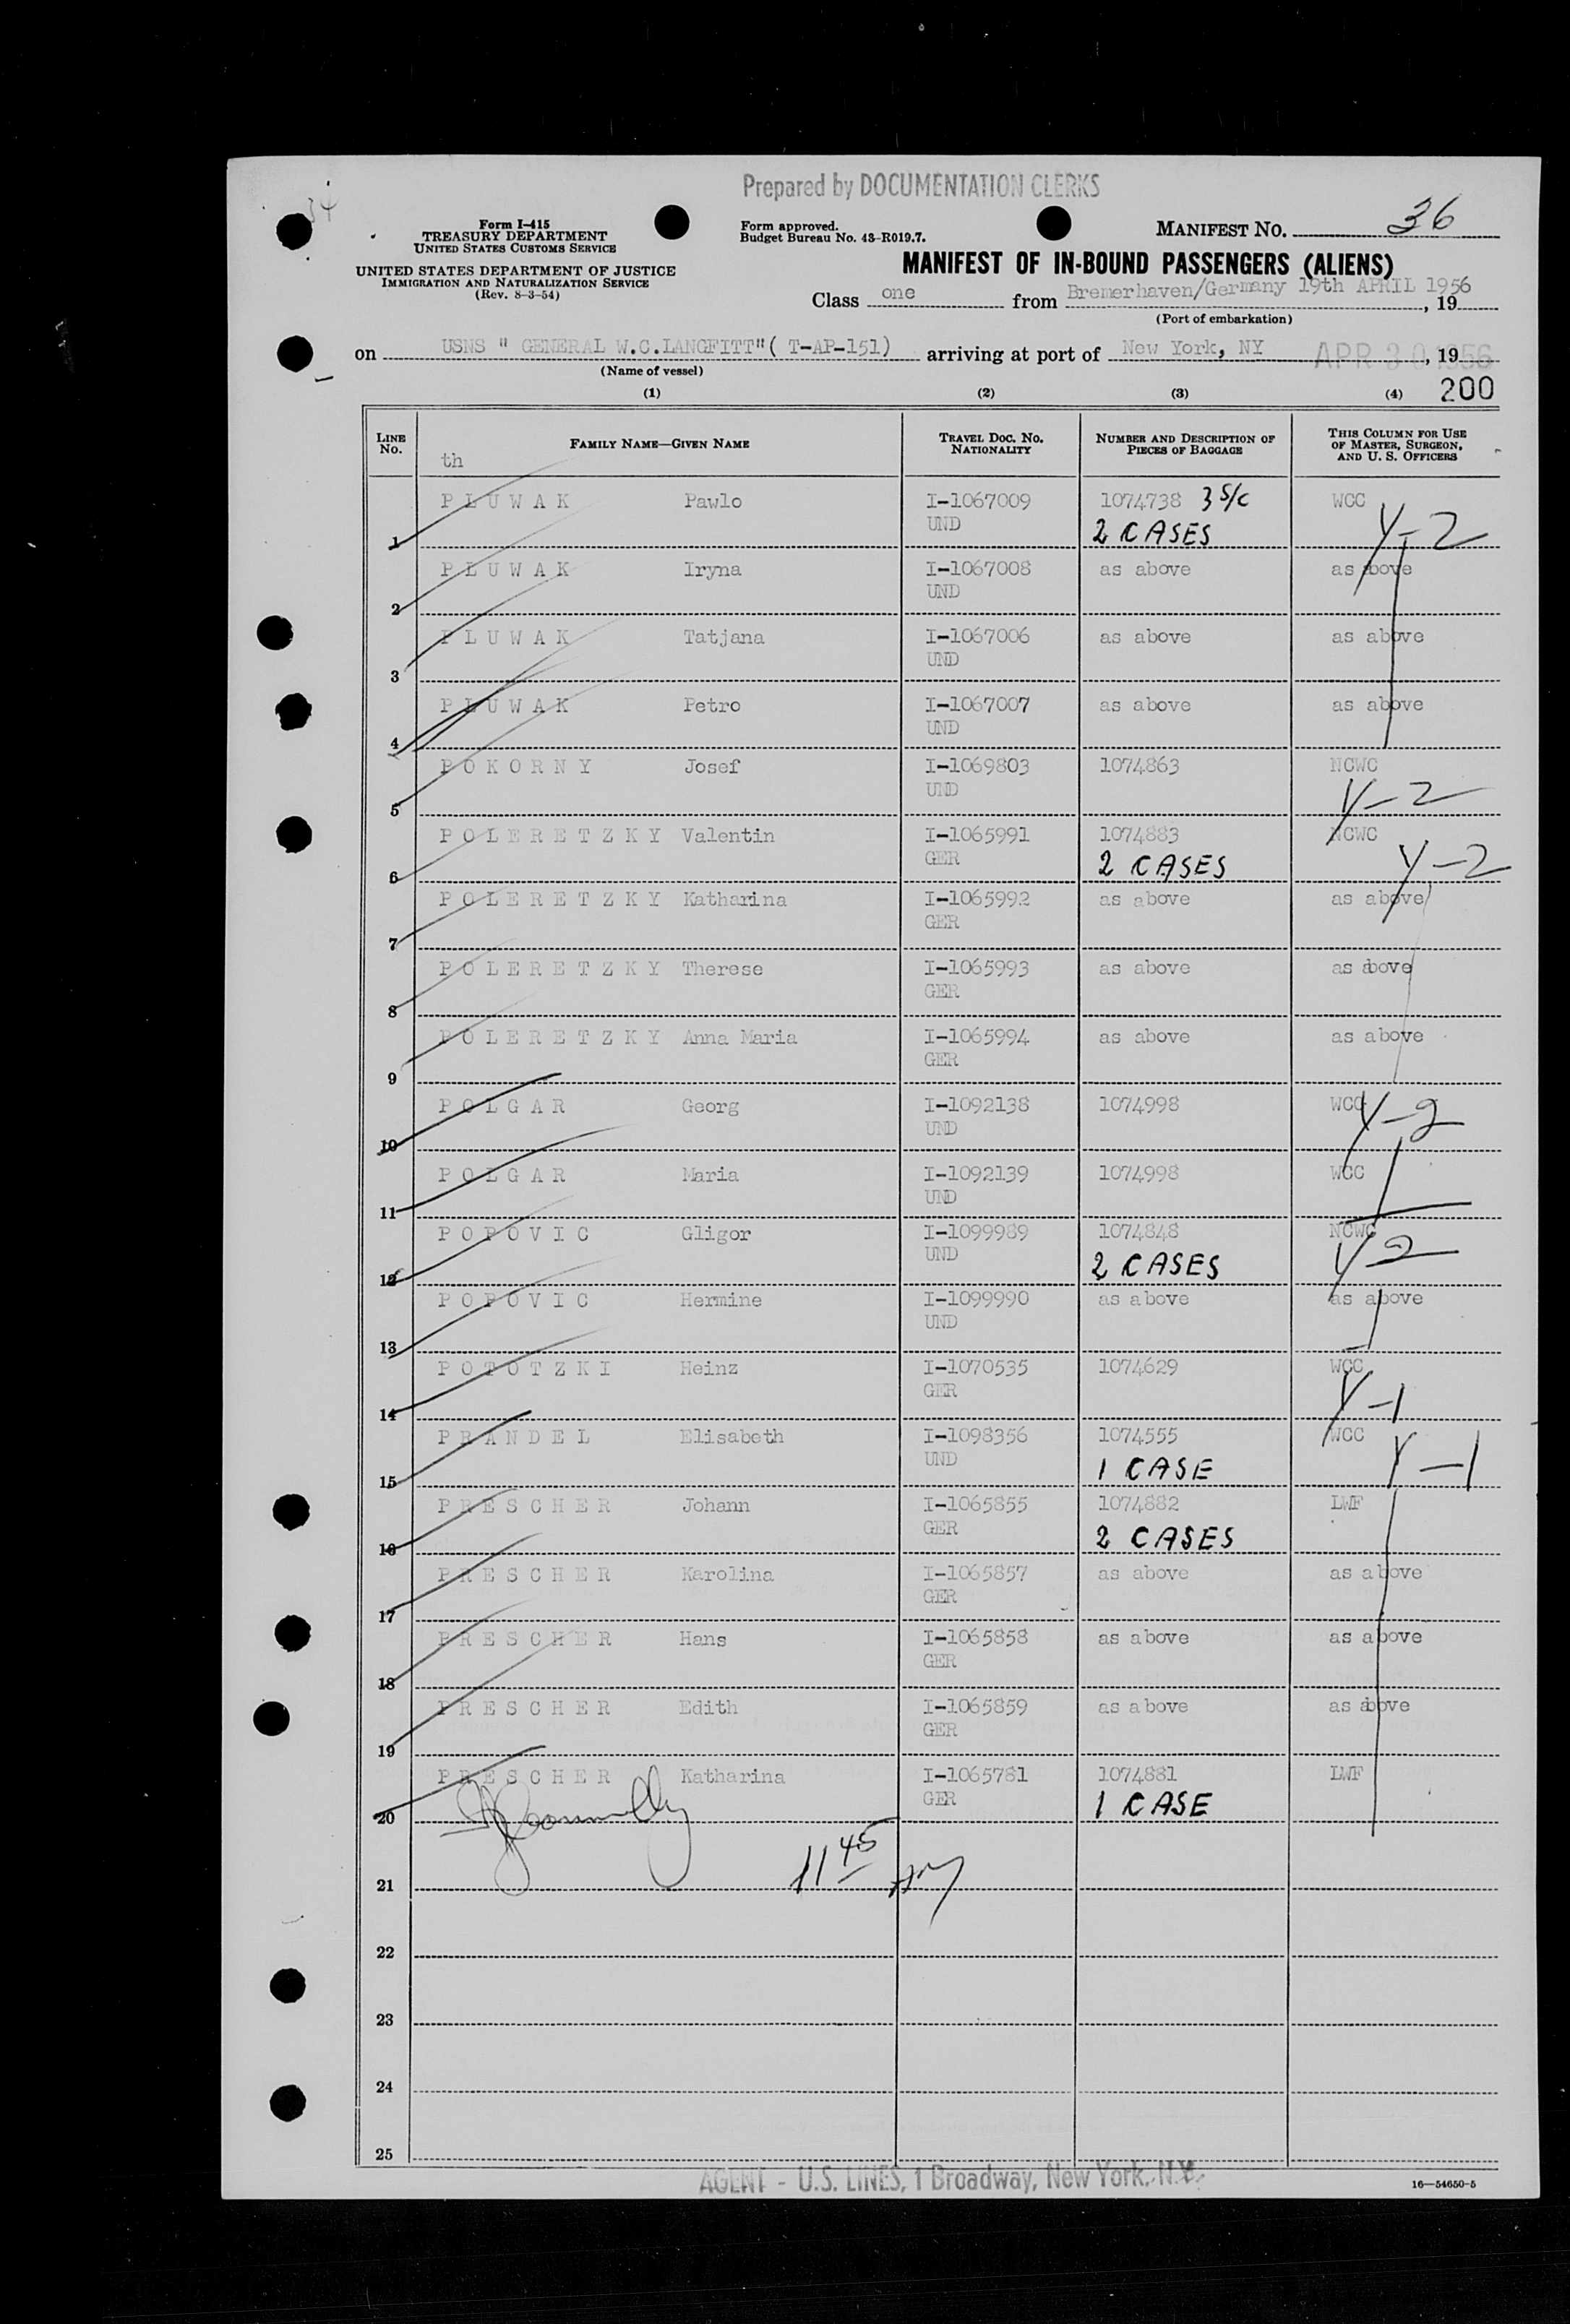 Prepared by DOCUMENTATION CLERKS
34
Form I-415
TREASURY DEPARTMENT
UNITED STATES CUSTOMS SERVICE
UNITED STATES DEPARTMENT OF JUSTICE
IMMIGRATION AND NATURALIZATION SERVICE
(Rev. 8-3-54)
Form approved.
Budget Bureau No. 43-R019.7.
MANIFEST NO. 36
MANIFEST OF IN-BOUND PASSENGERS (ALIENS)
Class one from Bremerhaven/Germany 19th APRIL 1956, 19
(Port of embarkation)
on USNS " GENERAL W.C.LANGFITT"( T-AP-151) arriving at port of New York, NY APR 30 1956, 19
(Name of vessel)
(1) (2) (3) (4) 200
LINE NO. FAMILY NAME—GIVEN NAME TRAVEL DOC. NO. NATIONALITY NUMBER AND DESCRIPTION OF PIECES OF BAGGAGE THIS COLUMN FOR USE OF MASTER, SURGEON, AND U. S. OFFICERS
th
1 PLUWAK Pawlo I-1067009 UND 1074738 3 S/C 2 CASES WCC Y-2
2 PLUWAK Iryna I-1067008 UND as above as above
3 PLUWAK Tatjana I-1067006 UND as above as above
4 PLUWAK Petro I-1067007 UND as above as above
5 POKORNY Josef I-1069803 UND 1074863 NCWC Y-2
6 POLERETZKY Valentin I-1065991 GER 1074883 2 CASES NCWC Y-2
7 POLERETZKY Katharina I-1065992 GER as above as above
8 POLERETZKY Therese I-1065993 GER as above as above
9 POLERETZKY Anna Maria I-1065994 GER as above as above
10 POLGAR Georg I-1092138 UND 1074998 WCC Y-2
11 POLGAR Maria I-1092139 UND 1074998 WCC
12 POPOVIC Gligor I-1099989 UND 1074848 2 CASES NCWC Y-2
13 POPOVIC Hermine I-1099990 UND as above as above
14 POTOTZKI Heinz I-1070535 GER 1074629 WCC Y-1
15 PRANDEL Elisabeth I-1098356 UND 1074555 1 CASE WCC Y-1
16 PRESCHER Johann I-1065855 GER 1074882 2 CASES LWF
17 PRESCHER Karolina I-1065857 GER as above as above
18 PRESCHER Hans I-1065858 GER as above as above
19 PRESCHER Edith I-1065859 GER as above as above
20 PRESCHER Katharina I-1065781 GER 1074881 1 CASE LWF
21 11 45 AM
22
23
24
25
AGENT - U.S. LINES, 1 Broadway, New York, N.Y.
16—54650-5